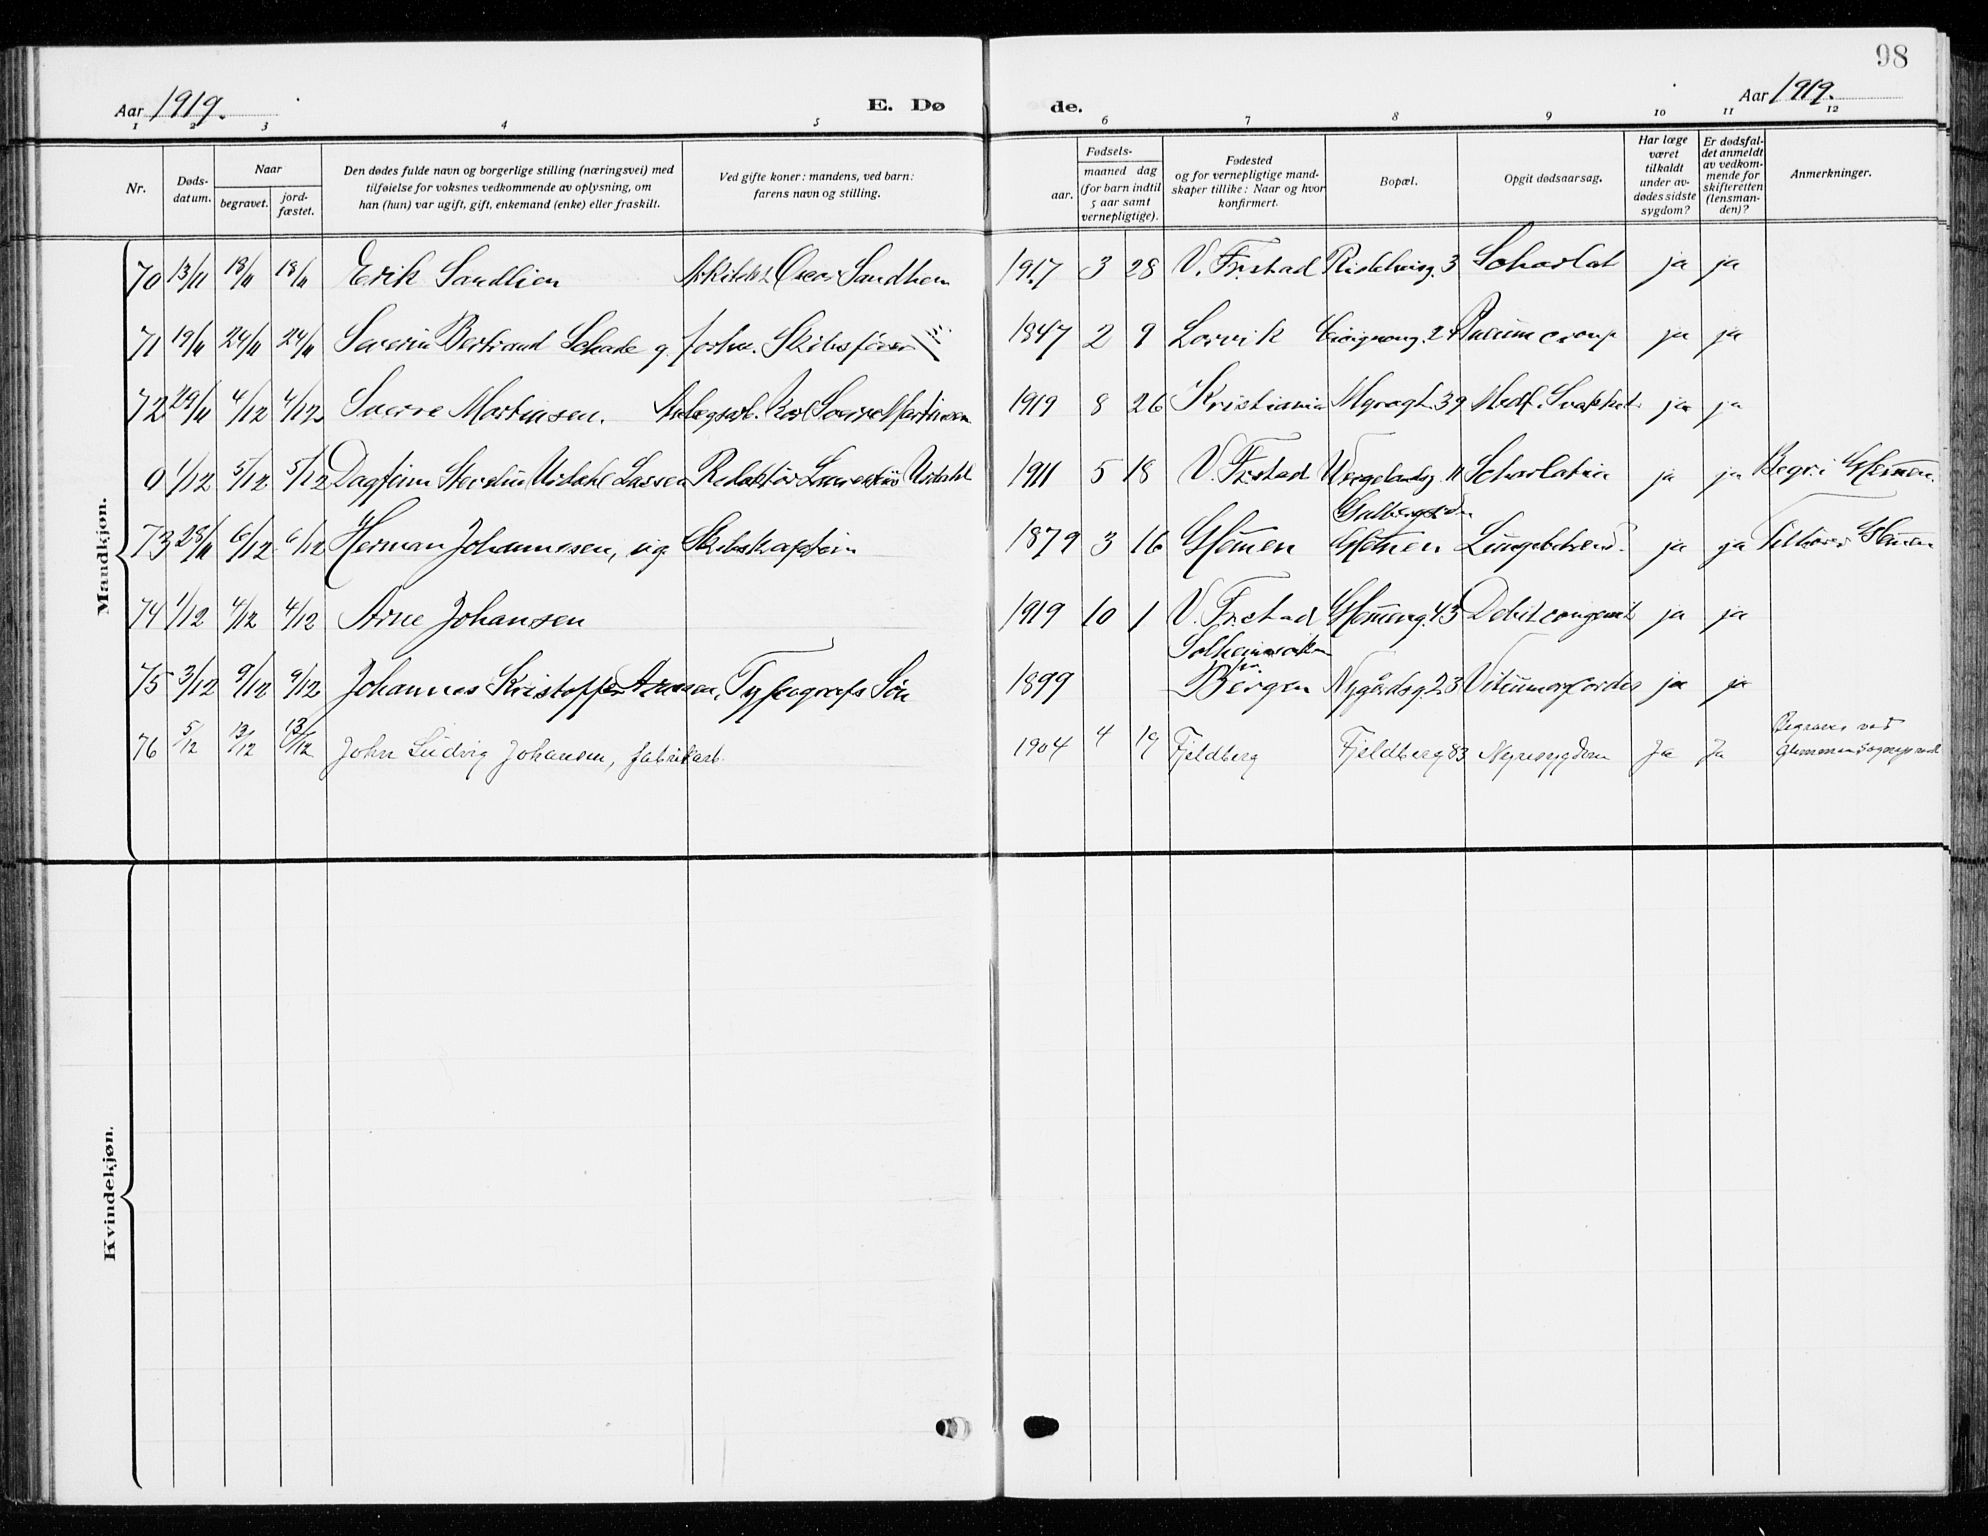 98
Aar 1919. E. Dø de. Aar 1919.
1 2 3 4 5 6 7 8 9 10 11 12
Nr.
Døds-
datum.
Naar
begravet.
jord-
fæstet.
Den dødes fulde navn og borgerlige stilling (næringsvei) med
tilføielse for voksnes vedkommende av oplysning, om
han (hun) var ugift, gift, enkemand (enke) eller fraskilt.
Ved gifte koner: mandens, ved barn:
farens navn og stilling.
Fødsels-
aar.
maaned dag
(for barn indtil
5 aar samt
vernepligtige).
Fødested
og for vernepligtige mand-
skaper tillike: Naar og hvor
konfirmert.
Bopæl.
Opgit dødsaarsag.
Har læge
været
tilkaldt
under av-
dødes sidste
sygdom?
Er dødsfal-
det anmeldt
av vedkom-
mende for
skifteretten
(lensman-
den)?
Anmerkninger.
Mandkjøn.
70 13/11 18/11 18/11 Erik Sandlien Oscar 1917 3 28 V. Frstad 3 Scharlat ja ja
71 19/11 24/11 24/11 Severin Bertrand Schade g. forhv. Skibsfører 1847 2 9 Larvik 24 ja ja
72 29/11 4/12 4/12 Sverre Martinsen. Karl Martinsen 1919 8 26 Kristiania Myragt. 39 Medf. Svakhet ja ja
0 1/12 5/12 5/12 Dagfinn Urdahl Lassen Redaktør Laurentius Urdahl 1911 5 18 V. Frstad 11 Scharlatin ja ja Begr. i Glemmen.
73 28/11 6/12 6/12 Herman Johannesen, ug. Skibskaptein 1879 3 16 Glemmen Glemmen ja ja Tilhører Glemmen
74 1/12 4/12 4/12 Arne Johansen 1919 10 1 V. Frstad Glemmeng. 43 Debil. congenit ja ja
Solheimsviken
75 3/12 9/12 9/12 Johannes Kristoffer Arnesen, Typografs Søn 1899 Bergen Nygårdsg. 23 Vitium cordis ja ja
76 5/12 13/12 13/12 John Ludvig Johansen, fabrikarb. 1904 4 19 Fjeldberg Fjeldberg 83 Nyresygdom Ja Ja Begraves ved
Glemmen
Kvindekjøn.